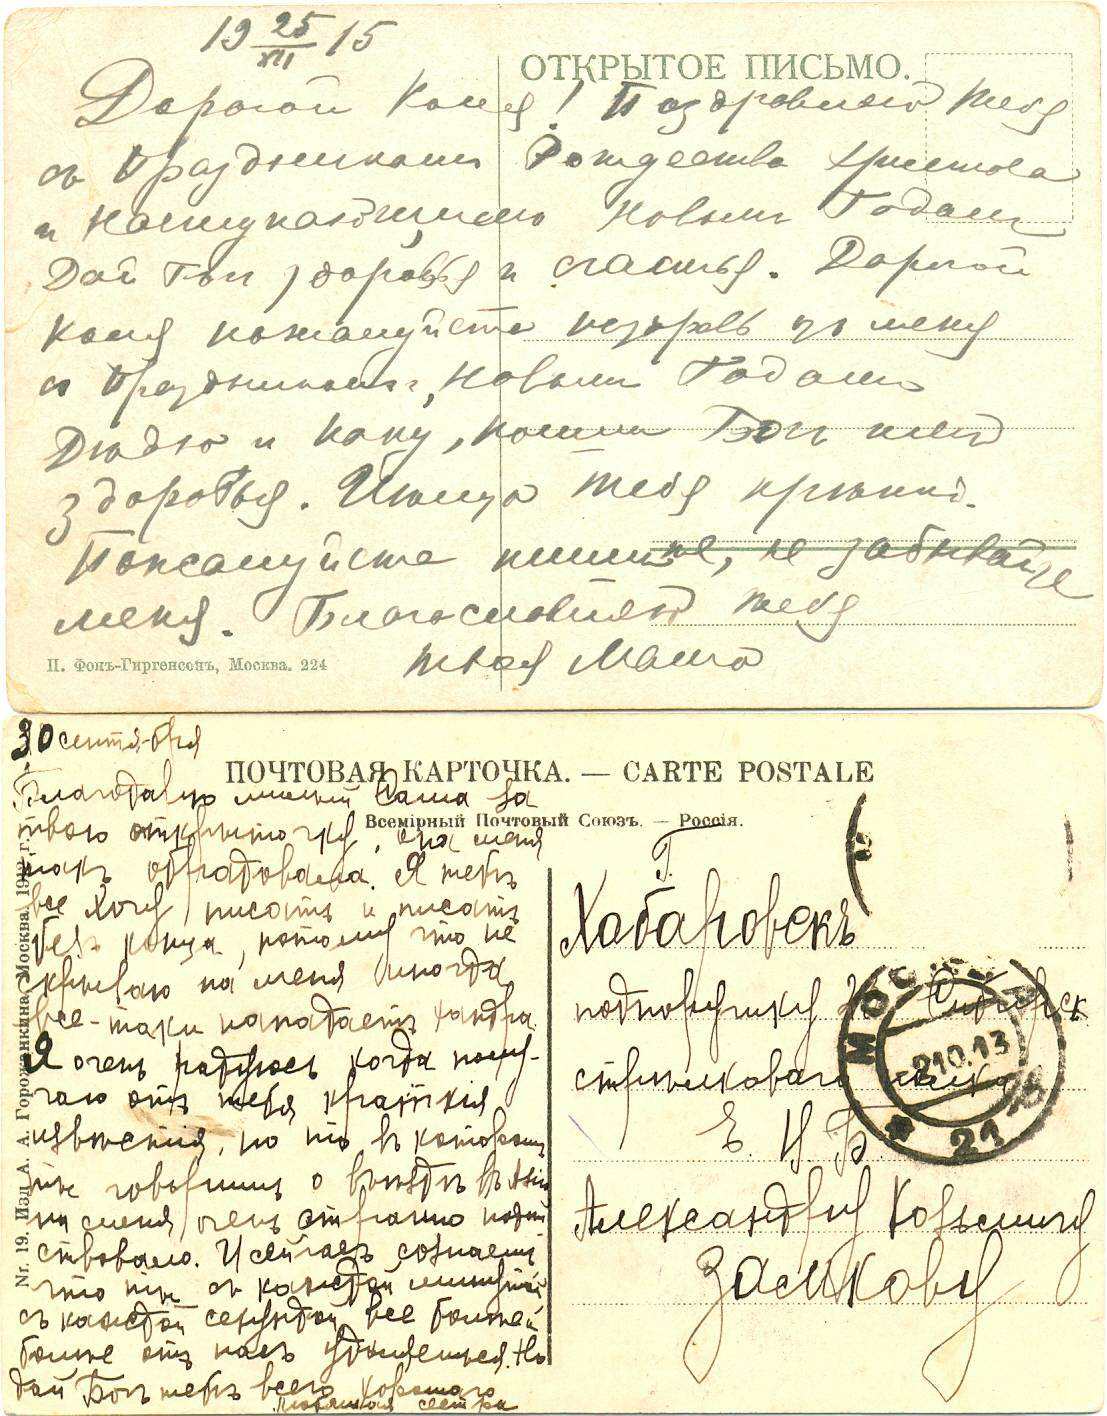 19 25/XII 15
ОТКРЫТОЕ ПИСЬМО.
Дорогой Коля! Поздравляю тебя
съ Праздникомъ Рождества Христова
и Наступающимъ Новымъ Годомъ
Дай Богъ здоровья и счастья. Дорогой
Коля пожалуйста поздравь за меня
съ Праздникомъ, Новымъ Годомъ
Дядю и, пошли Богъ имъ
здоровья. Цѣлую тебя крѣпко.
Пожалуйста пишите, не забывайте
меня. Благословляю тебя
твоя Мама
П. Фонъ-Гиргенсонъ, Москва. 224
30 сентября
ПОЧТОВАЯ КАРТОЧКА. — CARTE POSTALE
Всемірный Почтовый Союзъ. — Россія.
Благодарю милый Саша за
твою открыточку, она меня
такъ обрадовала. Я тебѣ
все хочу писать и писать
безъ конца, потому что не
скрываю на меня иногда
все-таки нападаетъ хандра
Я очень радуюсь когда полу-
чаю отъ тебя краткія
извѣстія, но то въ которомъ
ты говоришь о выѣздѣ въ
на меня очень странно подѣй
ствовало. И сейчасъ сознаешь
что ты съ каждой минутой
съ каждой секундой все болѣе и
болѣе отъ насъ удаляешься. Но
дай Богъ тебѣ всего хорошаго
любящая сестра
Nr. 19. Изд. А. А. Горожанкина, Москва, 1912 г.
Г.
Хабаровскъ
подпоручику Сибирск
стрѣлковаго полка
Е. И. В.
Александру Козьмичу
Заикову
МОСКВА
2 10.13
21